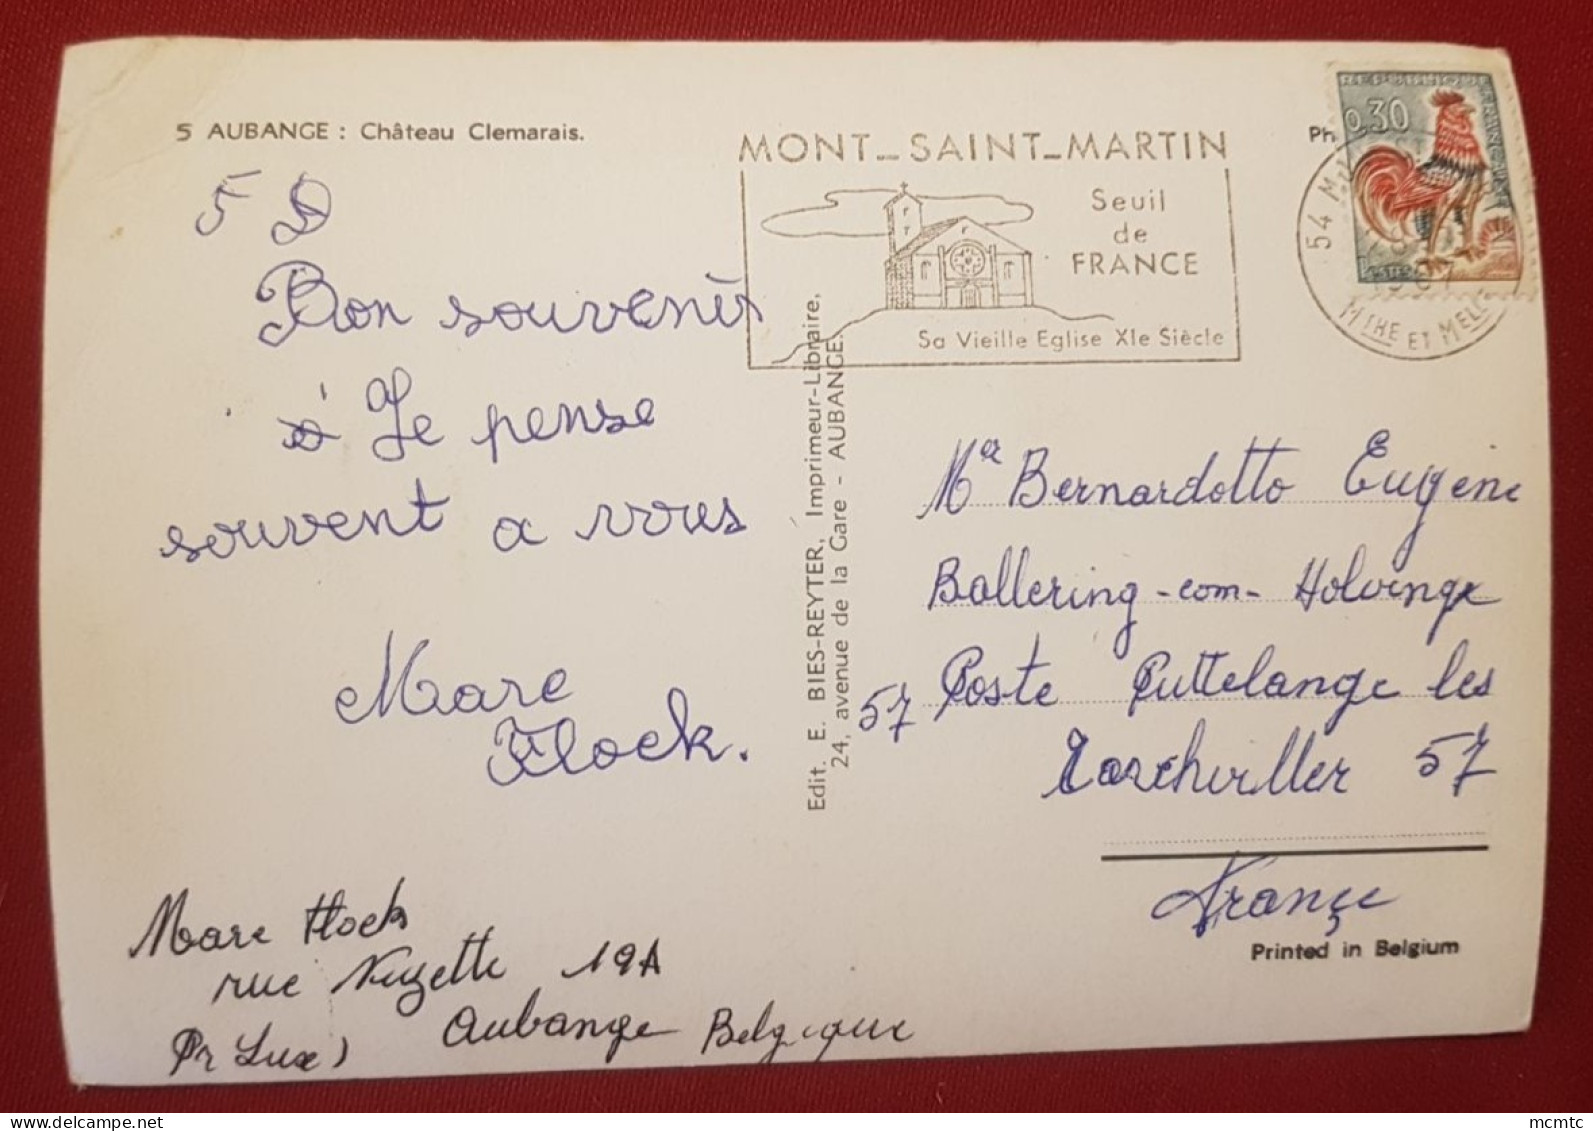 5 AUBANGE : Château Clemarais.
Bon souvenir
Je pense
souvent a vous
Marc
Flock.
Marc Flock
19A
Aubange Belgique
(Pr Lux)
Edit. E. BIES-REYTER, Imprimeur-Libraire,
24, avenue de la Gare - AUBANGE.
MONT-SAINT-MARTIN
Seuil
de
FRANCE
Sa Vieille Eglise XIe Siècle
Ph
REPUBLIQUE FRANCAISE
0,30
POSTES
54 M
MTHE ET MELLE
Mr Bernardotto Eugène
Ballering-com-Holvinge
57 Poste Puttelange les
57
France
Printed in Belgium
mcmtc
www.delcampe.net